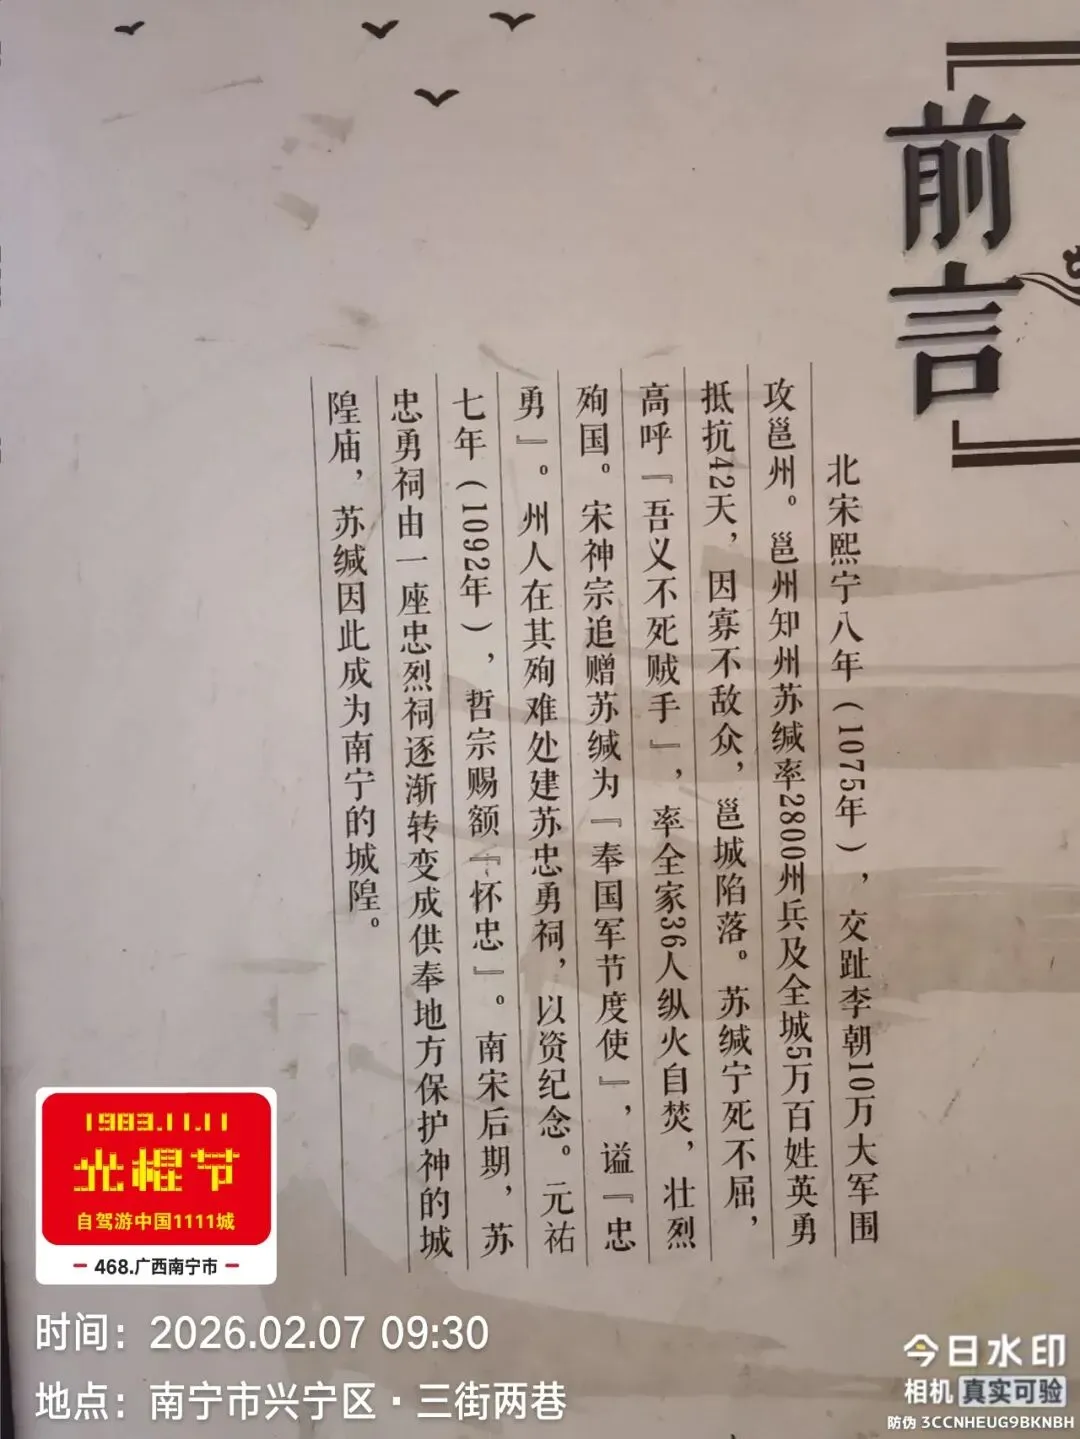 前言
北宋熙宁八年（1075年），交趾李朝10万大军围
攻邕州。邕州知州苏缄率2800州兵及全城5万百姓英勇
抵抗42天，因寡不敌众，邕城陷落。苏缄宁死不屈，
高呼『吾义不死贼手』，率全家36人纵火自焚，壮烈
殉国。宋神宗追赠苏缄为『奉国军节度使』，谥『忠
勇』。州人在其殉难处建苏忠勇祠，以资纪念。元祐
七年（1092年），哲宗赐额『怀忠』。南宋后期，苏
忠勇祠由一座忠烈祠逐渐转变成供奉地方保护神的城
隍庙，苏缄因此成为南宁的城隍。
1983.11.11
光棍节
自驾游中国1111城
468.广西南宁市
时间：2026.02.07 09:30
地点：南宁市兴宁区·三街两巷
今日水印
相机 真实可验
防伪 3CCNHEUG9BKNBH